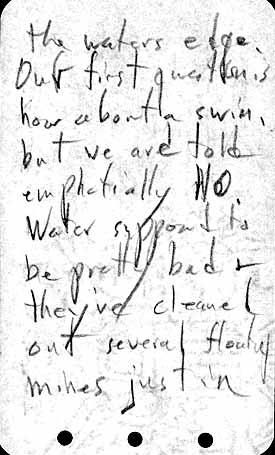 the waters edge.
Our first question is
how about a swim,
but we are told
emphatially NO.
Water suppord to
be pretty bad &
they've cleaned
out several floating
mines just in